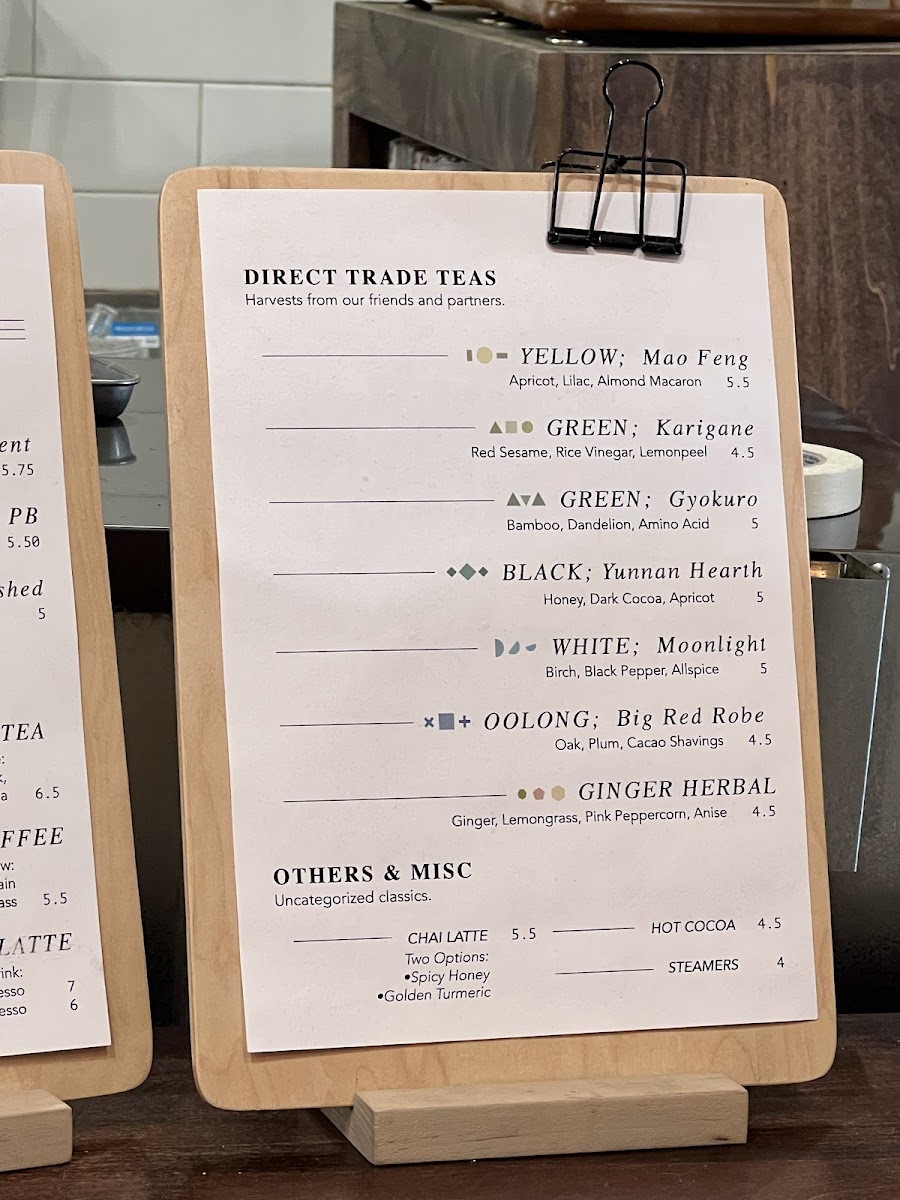 ent
5.75
PB
5.50
shed
5
TEA
a 6.5
FFEE
w:
ain
ass 5.5
LATTE
rink:
esso 7
esso 6
DIRECT TRADE TEAS
Harvests from our friends and partners.
YELLOW; Mao Feng
Apricot, Lilac, Almond Macaron 5.5
GREEN; Karigane
Red Sesame, Rice Vinegar, Lemonpeel 4.5
GREEN; Gyokuro
Bamboo, Dandelion, Amino Acid 5
BLACK; Yunnan Hearth
Honey, Dark Cocoa, Apricot 5
WHITE; Moonlight
Birch, Black Pepper, Allspice 5
OOLONG; Big Red Robe
Oak, Plum, Cacao Shavings 4.5
GINGER HERBAL
Ginger, Lemongrass, Pink Peppercorn, Anise 4.5
OTHERS & MISC
Uncategorized classics.
CHAI LATTE 5.5
Two Options:
•Spicy Honey
•Golden Turmeric
HOT COCOA 4.5
STEAMERS 4